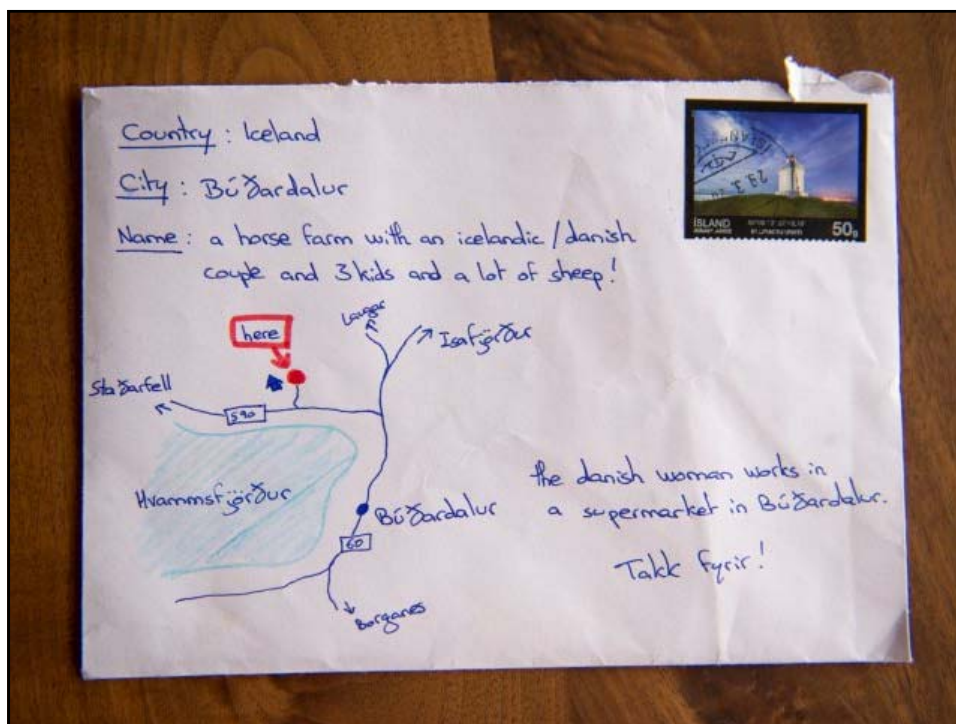 Country : Iceland
City : Búðardalur
Name : a horse farm with an icelandic / danish
couple and 3 kids and a lot of sheep!
ÍSLAND
50g
here
Laugar
Isafjörður
Staðarfell
590
Hvammsfjörður
Búðardalur
60
Borganes
the danish woman works in
a supermarket in Búðardalur.
Takk fyrir!